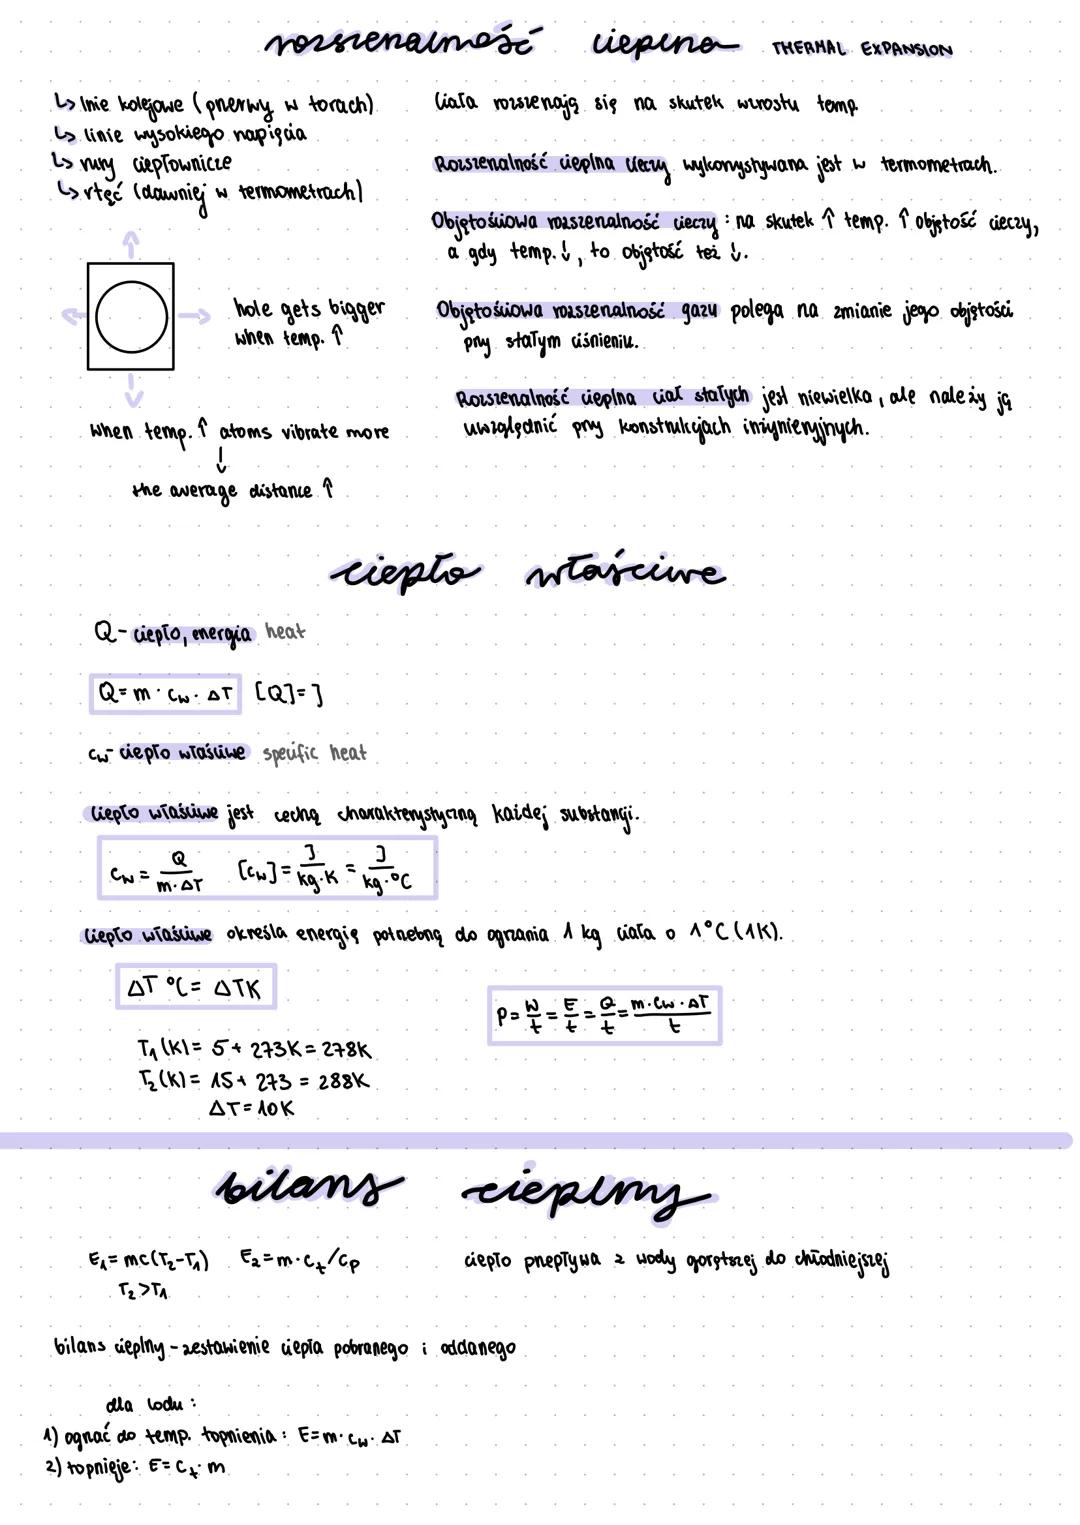 rozszerzalność cieplna THERMAL EXPANSION
↳ linie kolejowe (przerwy w torach)
↳ linie wysokiego napięcia
↳ rury ciepłownicze
↳ rtęć (dawniej w termometrach)
hole gets bigger
when temp. ↑
when temp. ↑ atoms vibrate more
↓
the average distance ↑
Ciała rozszerzają się na skutek wzrostu temp.
Rozszerzalność cieplna cieczy wykorzystywana jest w termometrach.
Objętościowa rozszerzalność cieczy: na skutek ↑ temp. ↑ objętość cieczy,
a gdy temp. ↓, to objętość też ↓.
Objętościowa rozszerzalność gazu polega na zmianie jego objętości
przy stałym ciśnieniu.
Rozszerzalność cieplna ciał stałych jest niewielka, ale należy ją
uwzględnić przy konstrukcjach inżynieryjnych.
ciepło właściwe
Q - ciepło, energia heat
Q = m · cw · ΔT [Q] = J
cw - ciepło właściwe specific heat
Ciepło właściwe jest cechą charakterystyczną każdej substancji.
cw = Q / m·ΔT [cw] = J / kg·K = J / kg·°C
Ciepło właściwe określa energię potrzebną do ogrzania 1 kg ciała o 1°C (1K).
ΔT °C = ΔTK
P = W/t = E/t = Q/t = m·cw·ΔT / t
T₁(K) = 5 + 273K = 278K
T₂(K) = 15 + 273 = 288K
ΔT = 10K
bilans cieplny
E₁ = mc(T₂-T₁) E₂ = m·ct/cp
T₂ > T₁
ciepło przepływa z wody gorętszej do chłodniejszej
bilans cieplny - zestawienie ciepła pobranego i oddanego
dla lodu:
1) ogrzać do temp. topnienia: E = m·cw·ΔT
2) topnieje: E = ct·m